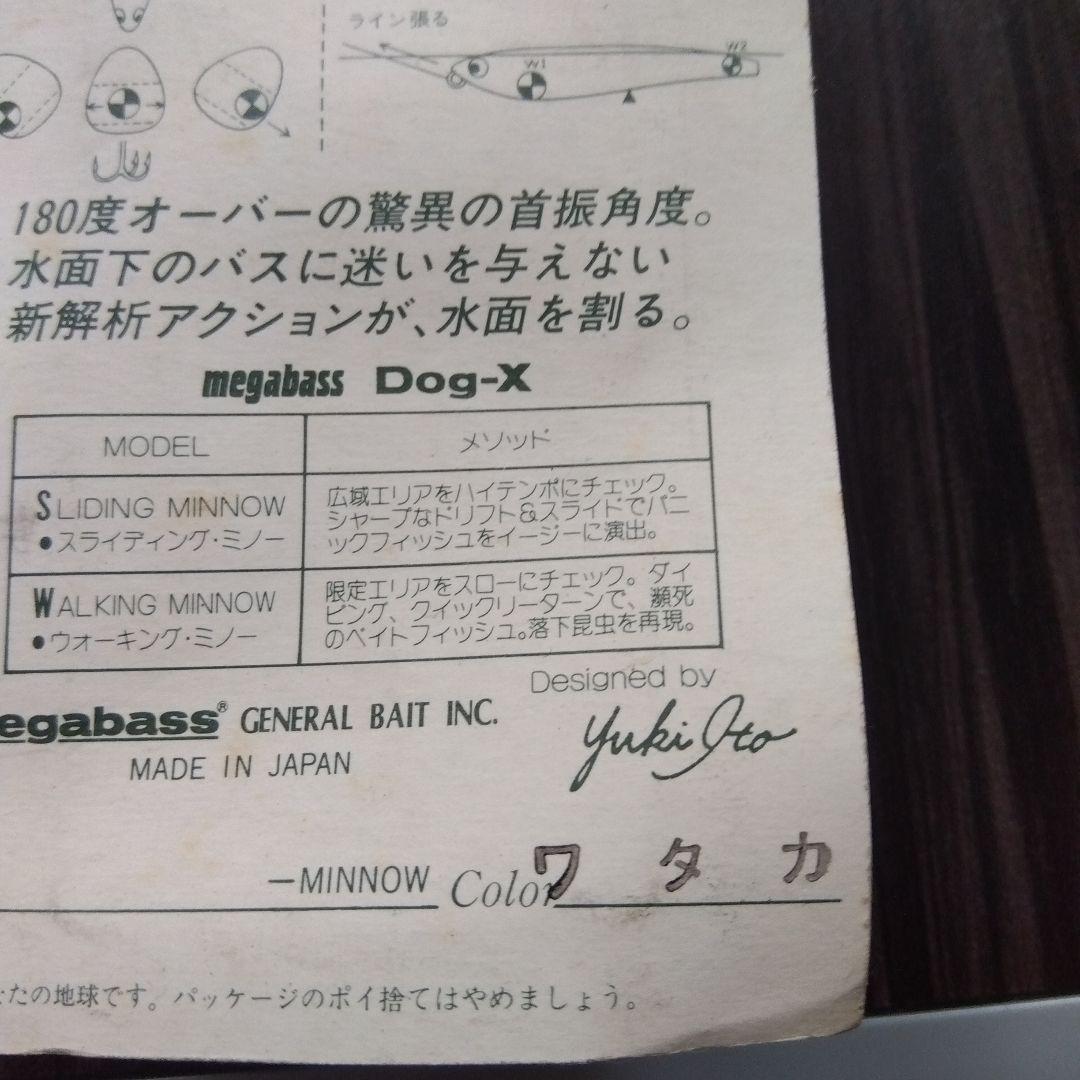 ライン張る
W1
W2
180度オーバーの驚異の首振角度。
水面下のバスに迷いを与えない
新解析アクションが、水面を割る。
megabass Dog-X
MODEL
メソッド
SLIDING MINNOW
•スライディング・ミノー
広域エリアをハイテンポにチェック。
シャープなドリフト&スライドでパニ
ックフィッシュをイージーに演出。
WALKING MINNOW
•ウオーキング・ミノー
限定エリアをスローにチェック。ダイ
ビング、クイックリーターンで、瀕死
のベイトフィッシュ。落下昆虫を再現。
Designed by
Yuki Ito
egabass® GENERAL BAIT INC.
MADE IN JAPAN
—MINNOW Color ワタカ
たの地球です。パッケージのポイ捨てはやめましょう。